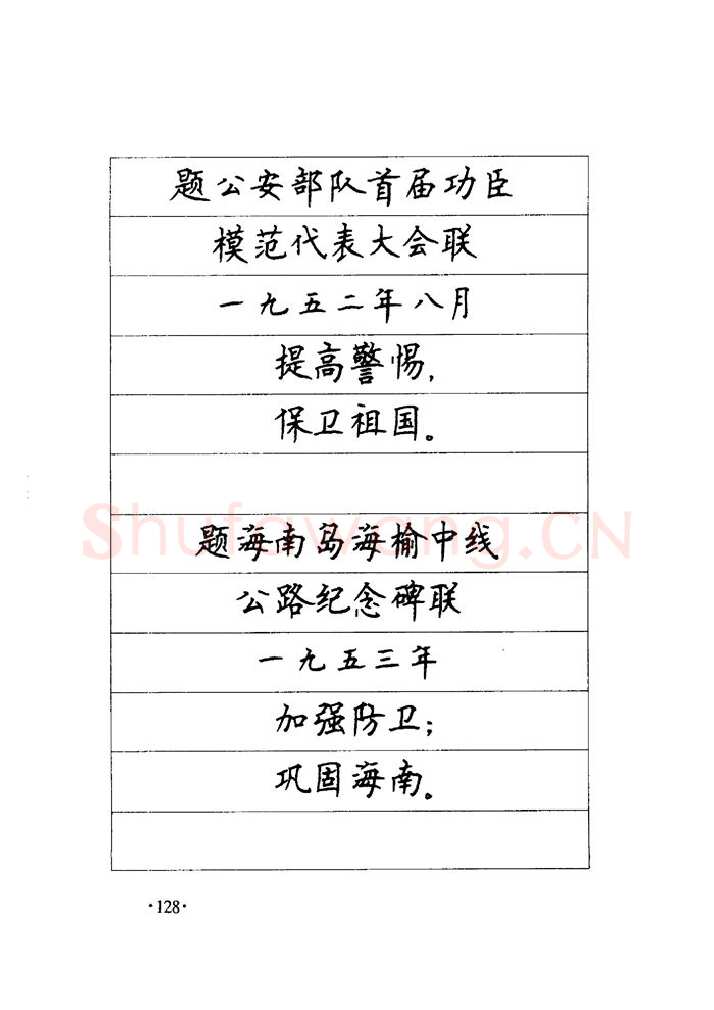 题公安部队首届功臣
模范代表大会联
一九五二年八月
提高警惕,
保卫祖国。
Shufawang.CN
题海南岛海榆中线
公路纪念碑联
一九五三年
加强防卫;
巩固海南。
·128·